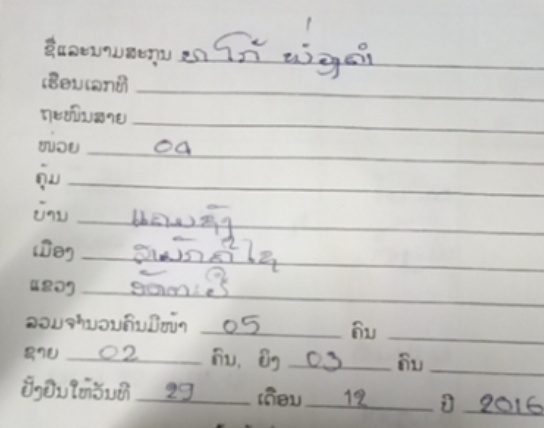 ຊື່ແລະນາມສະກຸນ
ເຮືອນເລກທີ
ຖະໜົນສາຍ
ໜ່ວຍ 04
ຄຸ້ມ
ບ້ານ
ເມືອງ ສາມັກຄີໄຊ
ແຂວງ ອັດຕະປື
ລວມຈຳນວນຄົນມີໜ້າ 05 ຄົນ
ຊາຍ 02 ຄົນ, ຍິງ 03 ຄົນ
ຢັ້ງຢືນໃຫ້ວັນທີ 29 ເດືອນ 12 ປີ 2016